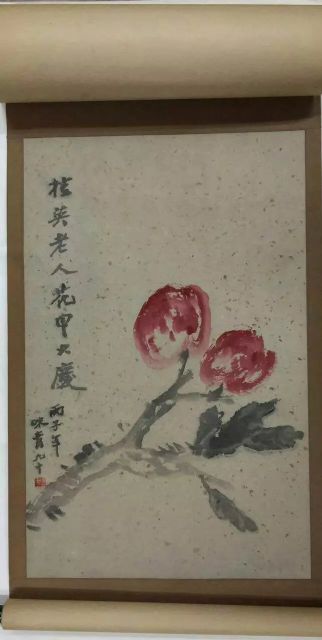 桂英老人花甲大慶
丙子年
味青九十